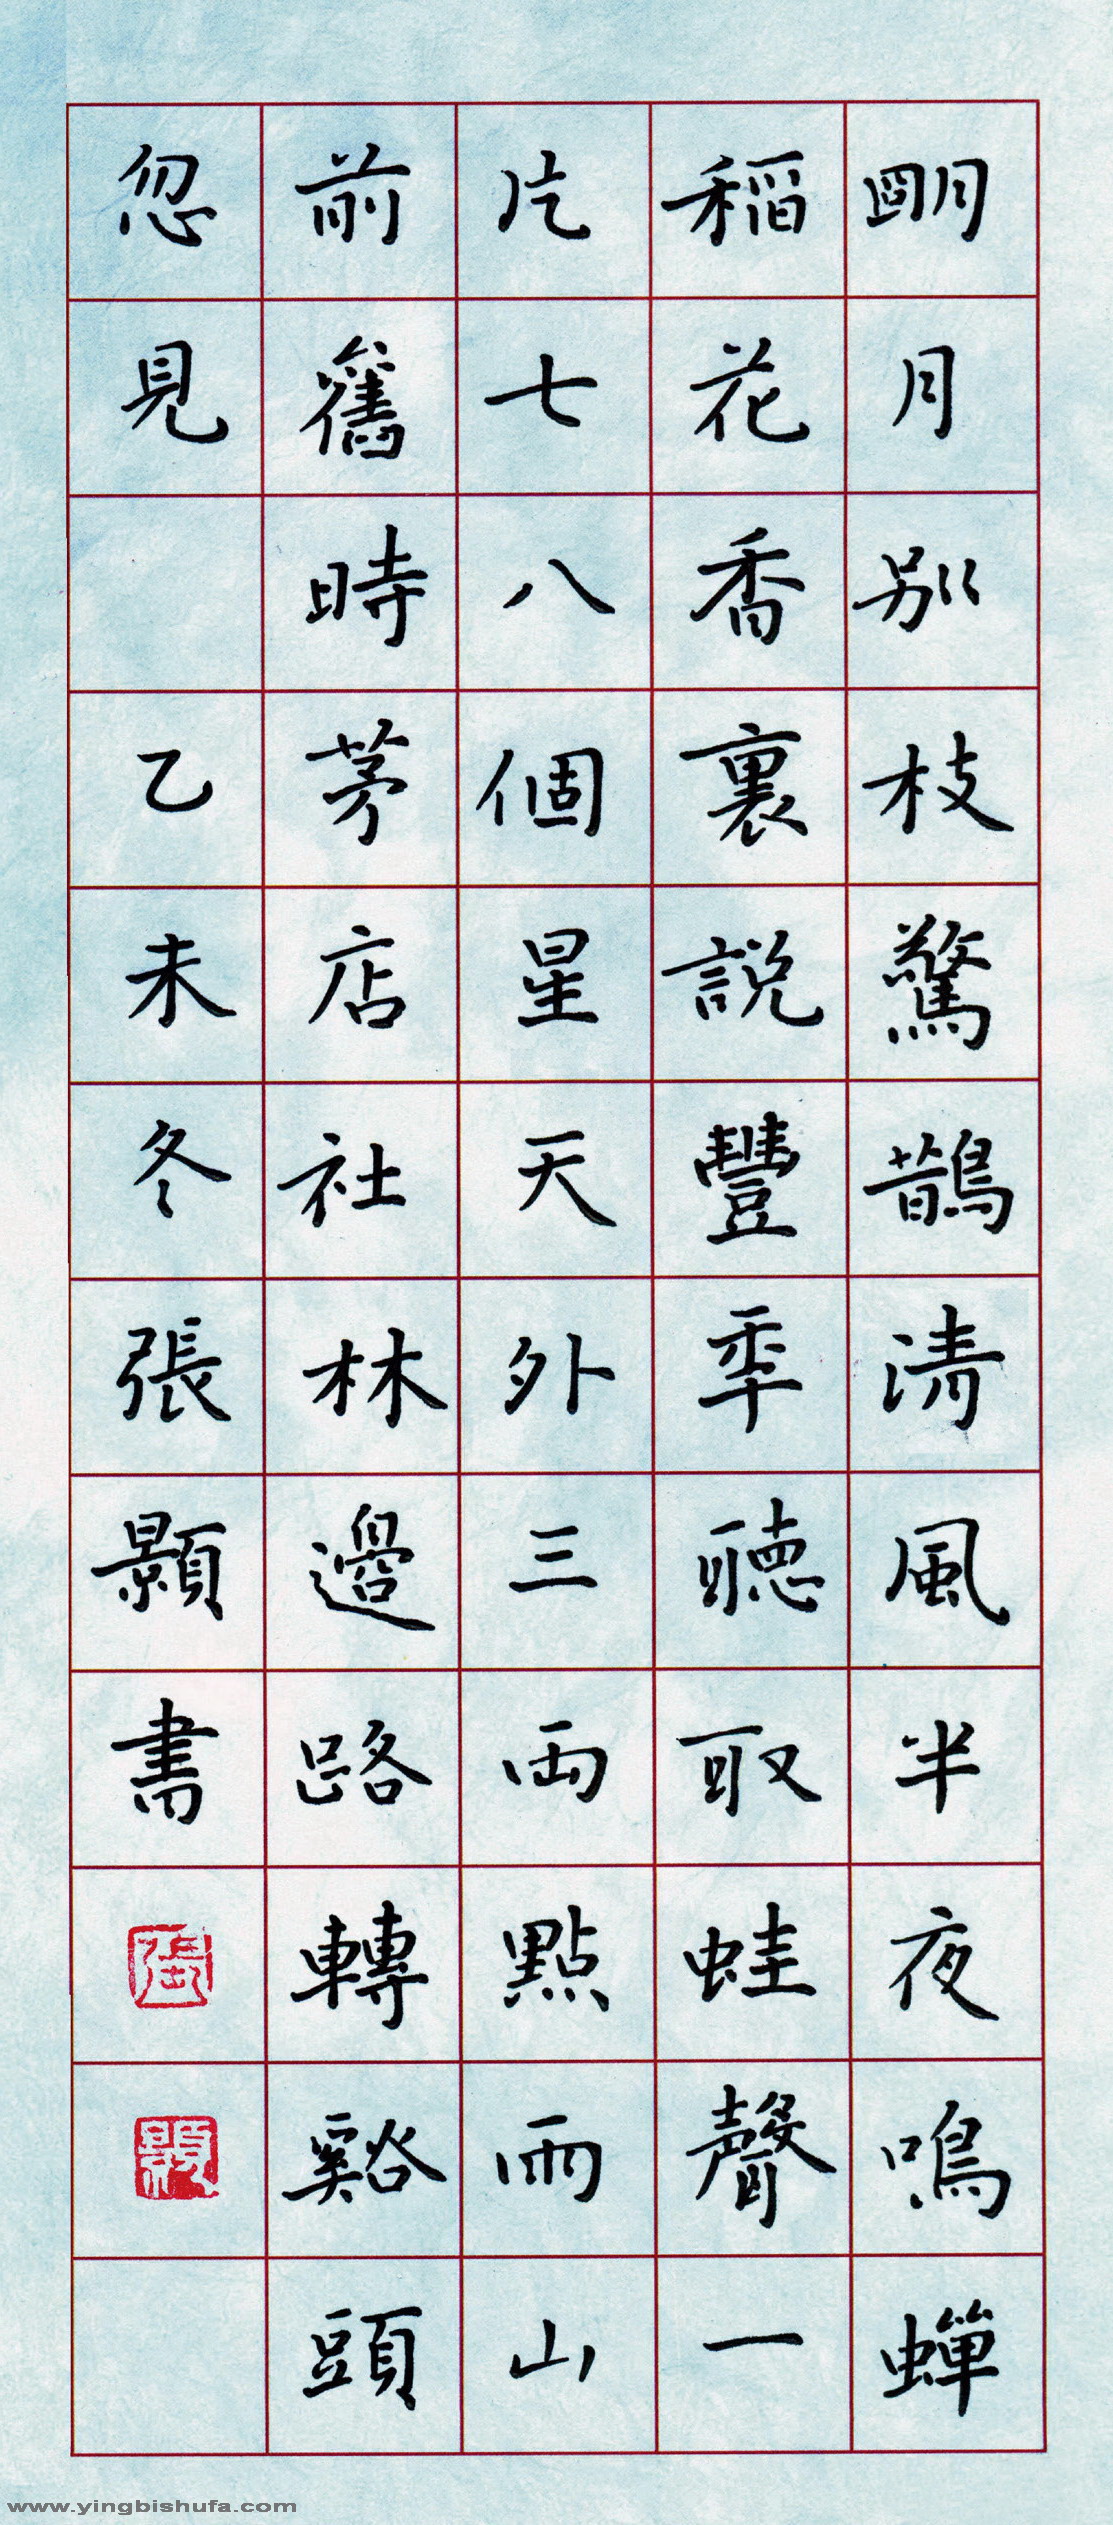 明月別枝驚鵲清風半夜鳴蟬
稻花香裏説豐年聽取蛙聲一
片七八個星天外三兩點雨山
前舊時茅店社林邊路轉谿頭
忽見
乙未冬張顥書
張
顥
www.yingbishufa.com